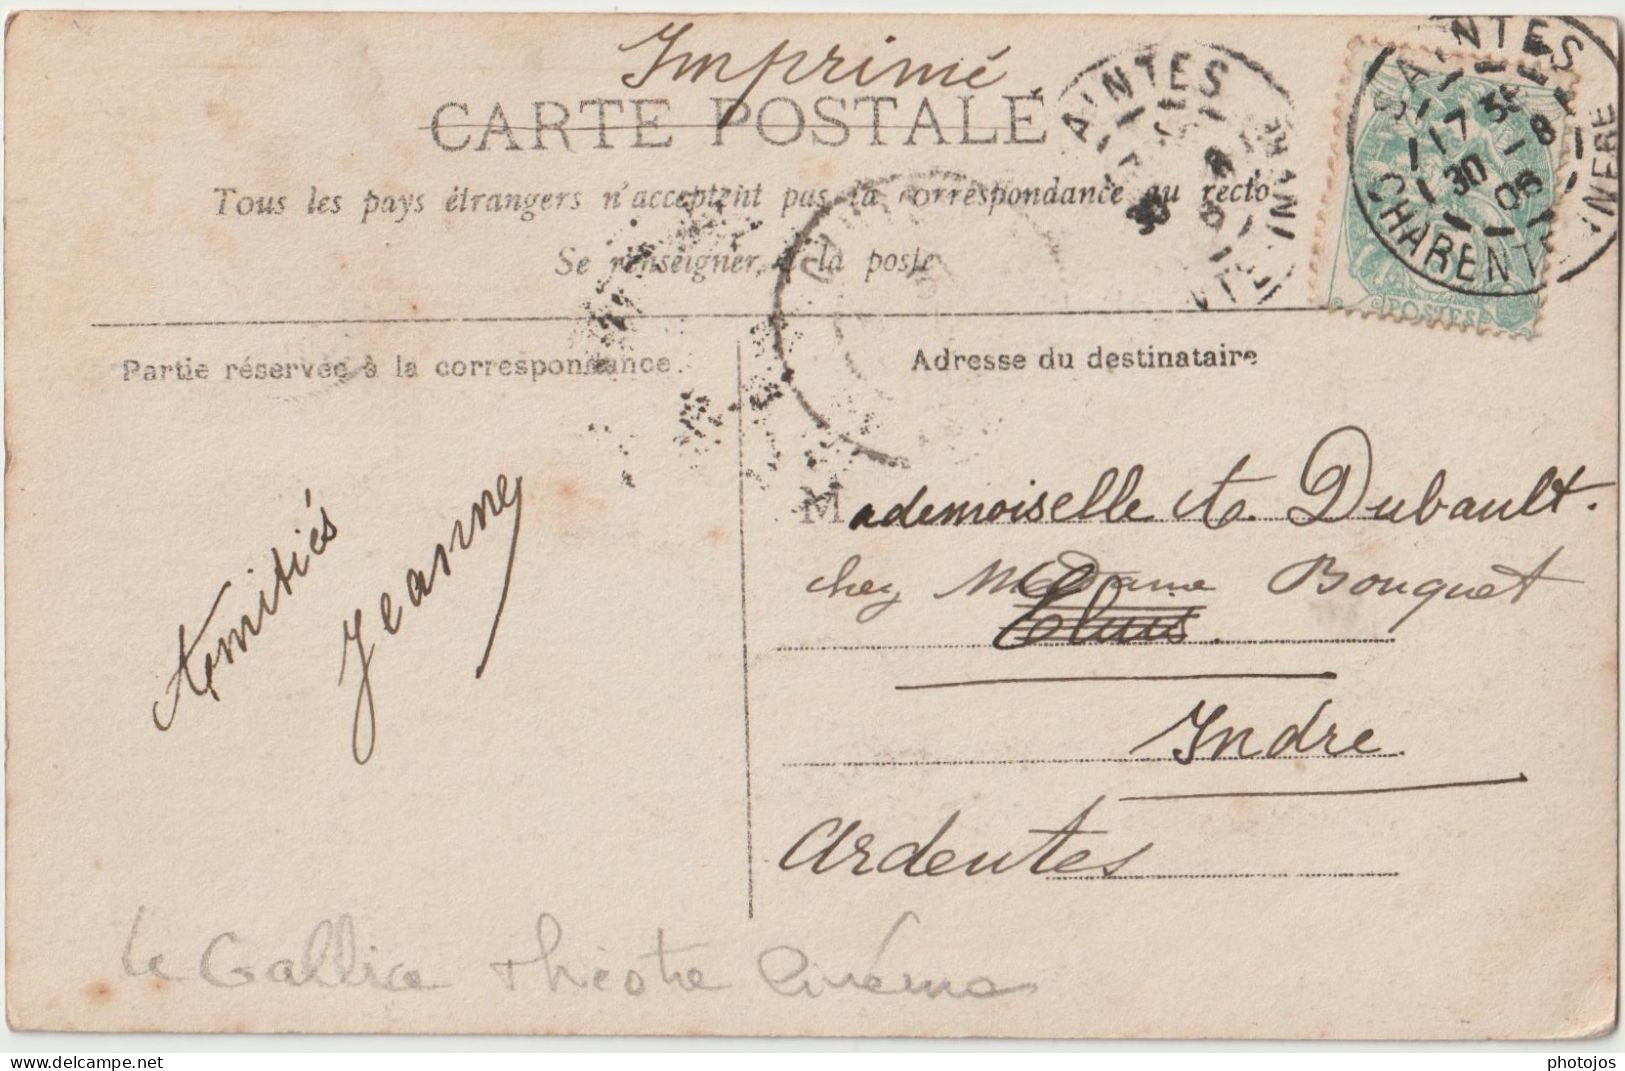 Imprimé
CARTE POSTALE
Tous les pays étrangers n'acceptent pas la correspondance au recto
Se renseigner à la poste
Partie réservée à la correspondance.
Adresse du destinataire
SAINTES
17 30
30 - 8
06
CHARENTE INFRE
POSTES
Amitiés
Jeanne
Mademoiselle A. Dubault.
chez Madame Bouquet
Cluis.
Indre.
Ardentes
Le Gallia théâtre Cinéma
delcampe.net
photojos